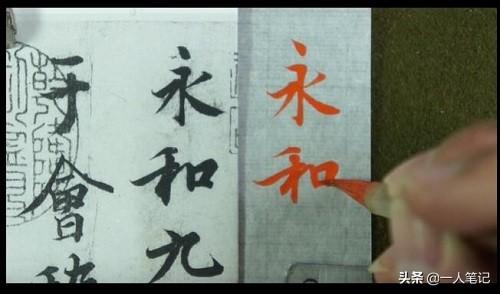 永和
永和九
于會
头条 @一人笔记